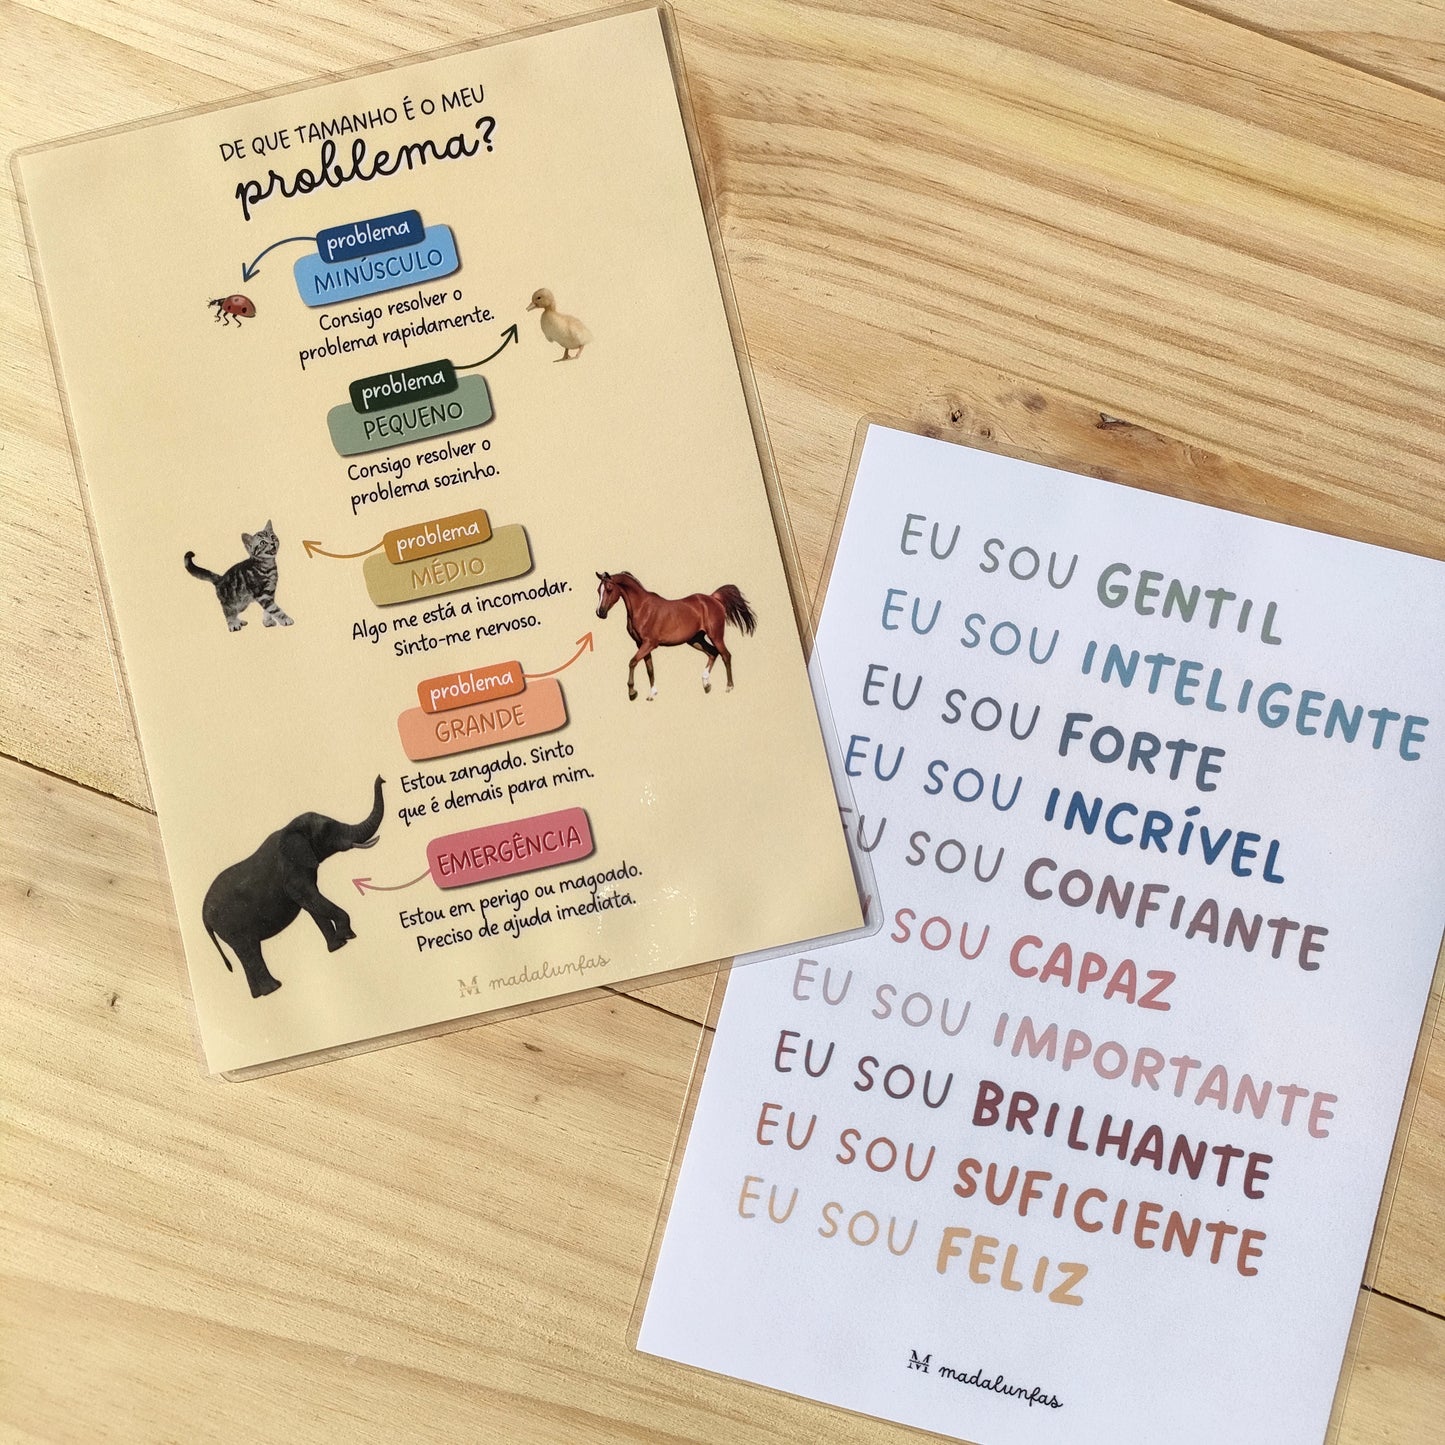 DE QUE TAMANHO É O MEU
problema?
problema
MINÚSCULO
Consigo resolver o
problema rapidamente.
problema
PEQUENO
Consigo resolver o
problema sozinho.
problema
MÉDIO
Algo me está a incomodar.
Sinto-me nervoso.
problema
GRANDE
Estou zangado. Sinto
que é demais para mim.
EMERGÊNCIA
Estou em perigo ou magoado.
Preciso de ajuda imediata.
M madalunfas
EU SOU GENTIL
EU SOU INTELIGENTE
EU SOU FORTE
EU SOU INCRÍVEL
EU SOU CONFIANTE
SOU CAPAZ
EU SOU IMPORTANTE
EU SOU BRILHANTE
EU SOU SUFICIENTE
EU SOU FELIZ
M madalunfas